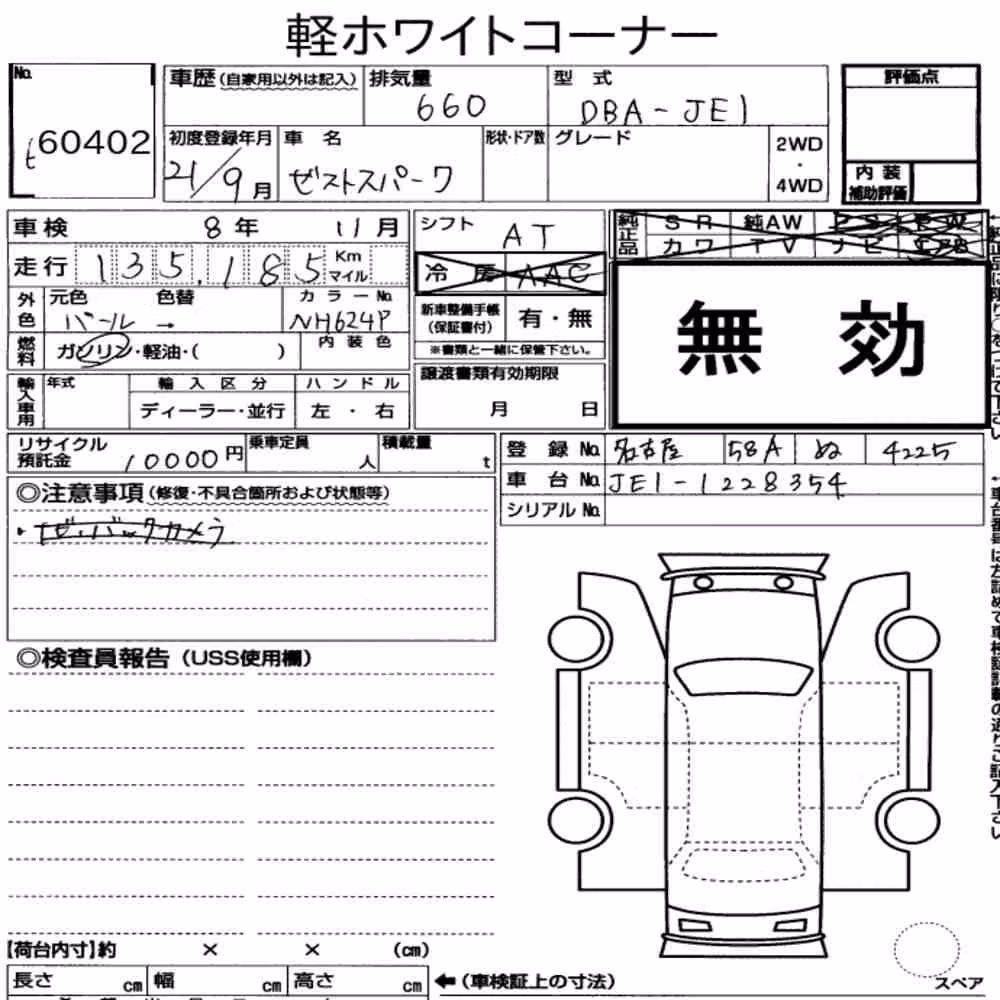 軽ホワイトコーナー
No.
60402
車歴(自家用以外は記入)
排気量
660
型式
DBA-JE1
評価点
初度登録年月
21/9月
車名
ゼストスパーク
形状・ドア数
グレード
2WD
・
4WD
内装
補助評価
車検 8年 11月
シフト
AT
純正品
SR 純AW PS PW
カワ TV ナビ
走行 135,185 Km
マイル
冷房 AAC
外色
元色 色替
パール →
カラーNo.
NH624P
新車整備手帳
(保証書付)
有・無
※書類と一緒に保管下さい。
無効
燃料
ガソリン・軽油・( )
内装色
輸入車用
年式
輸入区分
ハンドル
ディーラー・並行
左・右
譲渡書類有効期限
月 日
リサイクル
預託金
10000円
乗車定員
人
積載量
t
登録No. 名古屋 58A ぬ 4225
車台No. JE1-1228354
シリアルNo.
◎注意事項(修復・不具合箇所および状態等)
・ナビ・バックカメラ
◎検査員報告(USS使用欄)
【荷台内寸】約 × × (cm)
長さ cm 幅 cm 高さ cm
←(車検証上の寸法)
スペア